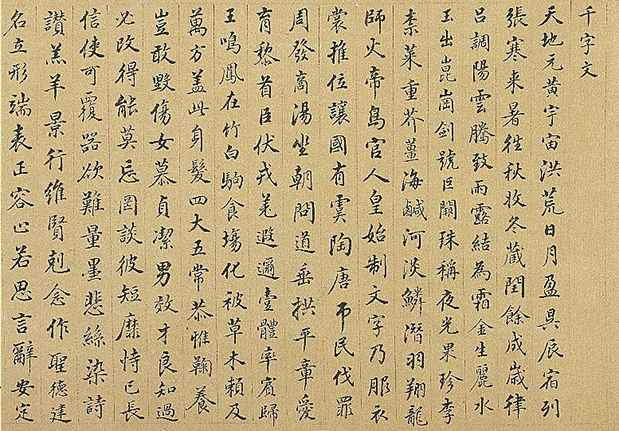 千字文
天地元黄宇宙洪荒日月盈昃辰宿列
張寒来暑往秋收冬蔵閏餘成歲律
吕調陽雲騰致雨露結為霜金生麗水
玉出崑崗剑號巨闕珠稱夜光果珍李
柰菜重芥薑海鹹河淡鱗潛羽翔龍
師火帝鳥官人皇始制文字乃服衣
裳推位讓國有虞陶唐弔民伐罪
周發商湯坐朝問道垂拱平章愛
育黎首臣伏戎羌遐邇壹體率賓歸
王鳴鳳在竹白駒食場化被草木賴及
萬方盖此身髮四大五常恭惟鞠養
豈敢毀傷女慕貞潔男效才良知過
必改得能莫忘罔談彼短靡恃己長
信使可覆器欲難量墨悲絲染詩
讃羔羊景行維賢剋念作聖德建
名立形端表正容止若思言辭安定